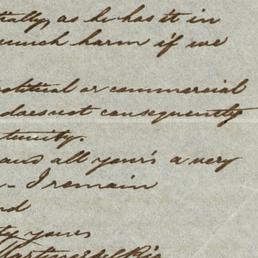 tially, as he has it in
much harm if we
political or commercial
does not consequently
tunity.
and all your's a very
- I remain
nd
ly yours
Martinez del Rio